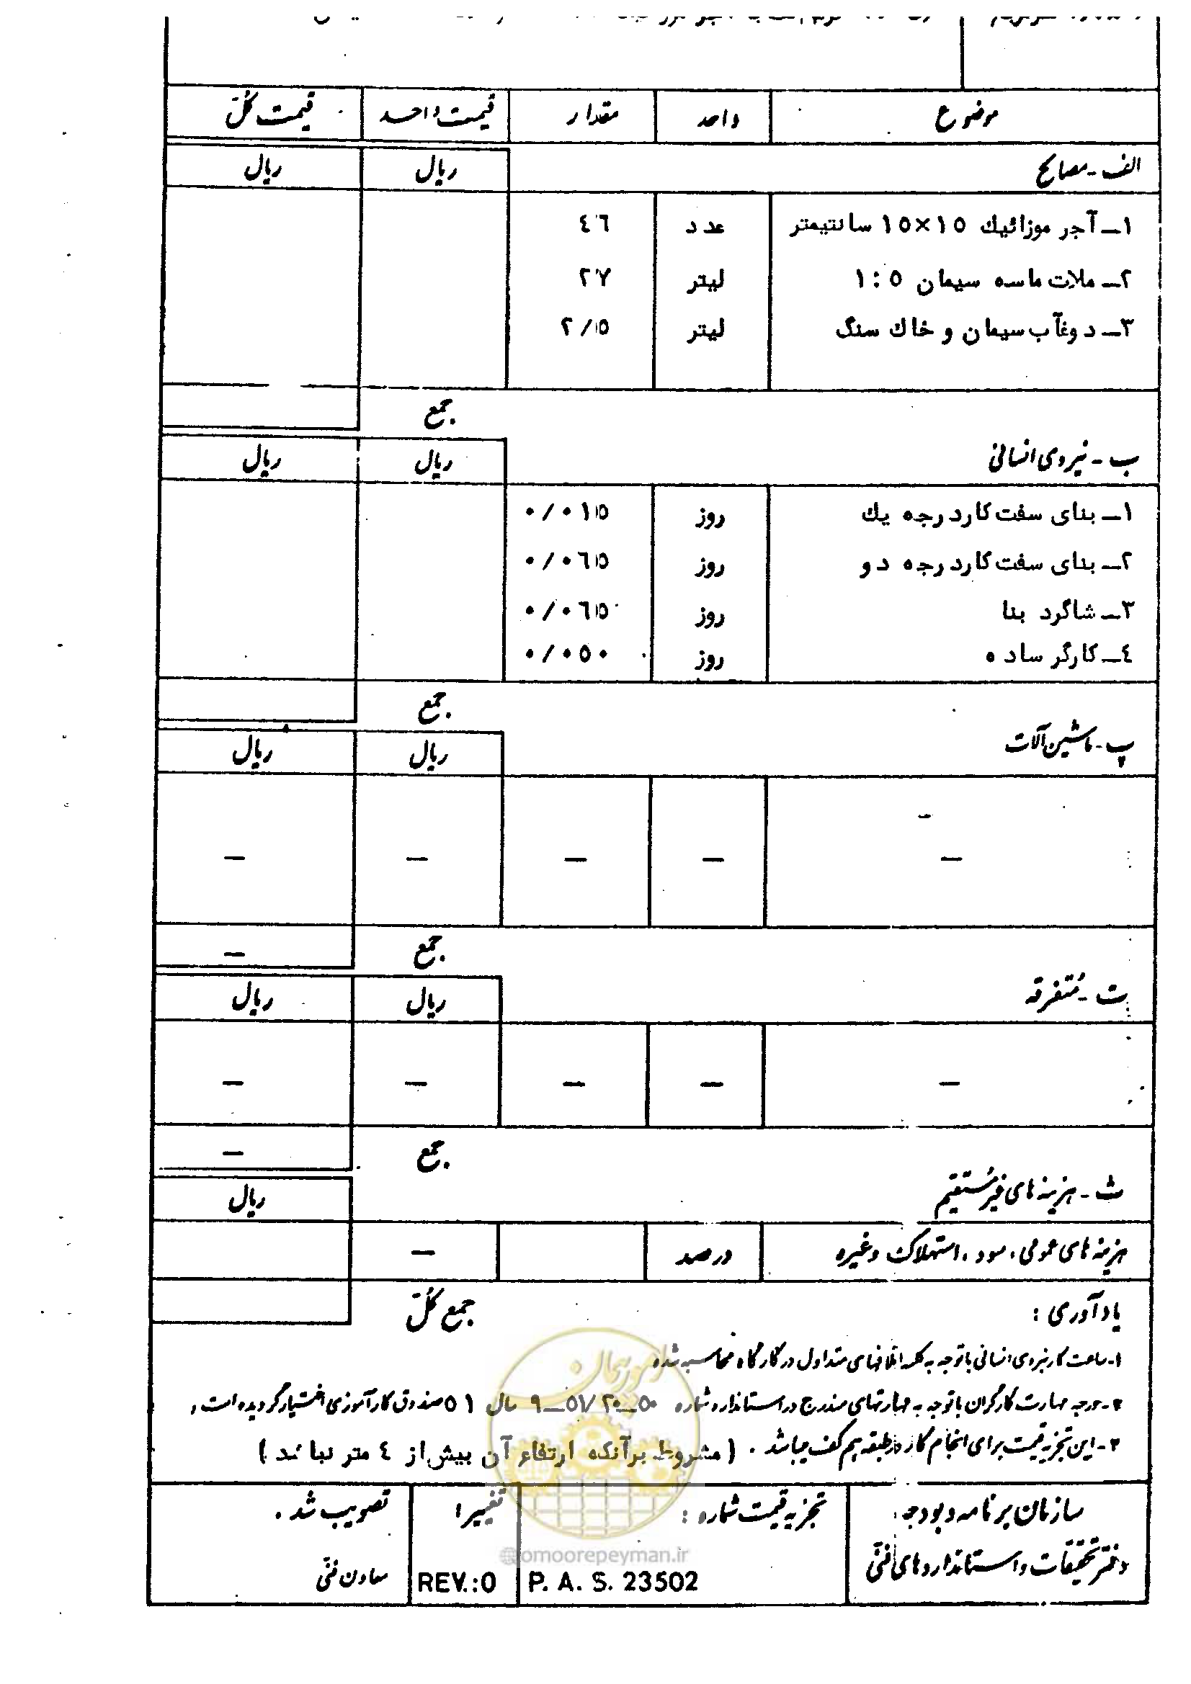 موضوع واحد مقدار قیمت واحد قیمت کل
الف - مصالح ریال ریال
۱ــ آجر موزائیك ۱۵×۱۵ سانتیمتر عدد ٤٦
۲ــ ملات ماسه سیمان ۵ : ۱ لیتر ۲۷
۳ــ دوغآب سیمان و خاك سنگ لیتر ۲/۵
جمع
ب - نیروی انسانی ریال ریال
۱ــ بنای سفت کار درجه یك روز ۰/۰۱۵
۲ــ بنای سفت کار درجه دو روز ۰/۰٦۵
۳ــ شاگرد بنا روز ۰/۰٦۵
٤ــ کارگر ساده روز ۰/۰۵۰
جمع
پ - ماشین آلات ریال ریال
— — — — —
جمع —
ت - متفرقه ریال ریال
— — — — —
جمع —
ث - هزینه های غیرمستقیم ریال
هزینه های عمومی ، سود ، استهلاک وغیره درصد —
یادآوری : جمع کل
۱- ساعت کار نیروی انسانی باتوجه به کلیه اتلافهای متداول در کارگاه محاسبه شده
۲- درجه مهارت کارگران باتوجه به مهارتهای مندرج در استاندارد شماره ۵۰ــ۲۰/۵۱ــ۹ سال ۵۱ صندوق کارآموزی اختیار گردیده است ,
۳- این تجزیه قیمت برای انجام کار در طبقه هم کف میباشد . ( مشروط برآنکه ارتفاع آن بیش از ٤ متر نباشد )
امور پیمان
@omoorepeyman.ir
سازمان برنامه و بودجه تجزیه قیمت شماره : تغییر تصویب شد .
دفتر تحقیقات و استانداردهای فنی P. A. S. 23502 REV.:0 معاون فنی